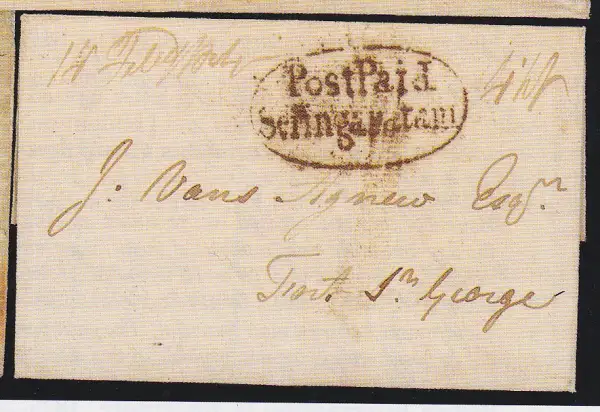 Post Paid
Seringapatam
J. Vans Agnew Esqr.
Fort St. George